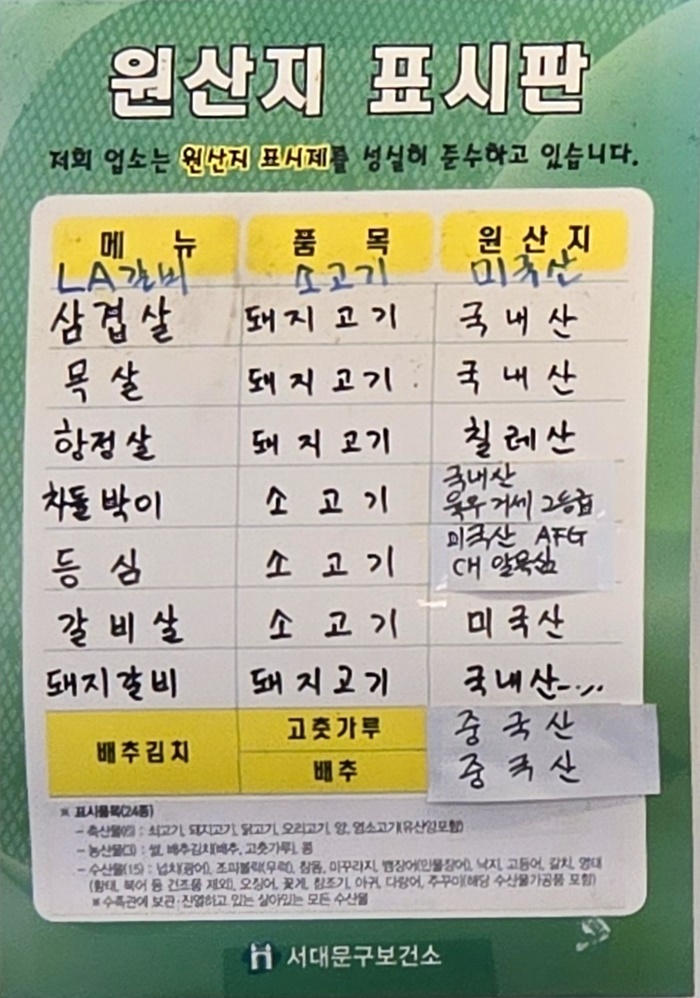 원산지 표시판
저희 업소는 원산지 표시제를 성실히 준수하고 있습니다.
메 뉴 품 목 원 산 지
LA갈비 소고기 미국산
삼겹살 돼지고기 국내산
목살 돼지고기 국내산
항정살 돼지고기 칠레산
차돌박이 소고기 국내산
육우 거세 2등급
등심 소고기 미국산 AFG
대 알목심
갈비살 소고기 미국산
돼지갈비 돼지고기 국내산
배추김치 고춧가루 중국산
배추 중국산
※ 표시품목(24종)
- 축산물(6) : 쇠고기, 돼지고기, 닭고기, 오리고기, 양, 염소고기(유산양포함)
- 농산물(3) : 쌀, 배추김치(배추, 고춧가루), 콩
- 수산물(15) : 넙치(광어), 조피볼락(우럭), 참돔, 미꾸라지, 뱀장어(민물장어), 낙지, 고등어, 갈치, 명태
(황태, 북어 등 건조품 제외), 오징어, 꽃게, 참조기, 아귀, 다랑어, 주꾸미(해당 수산물가공품 포함)
※수족관에 보관·진열하고 있는 살아있는 모든 수산물
서대문구보건소